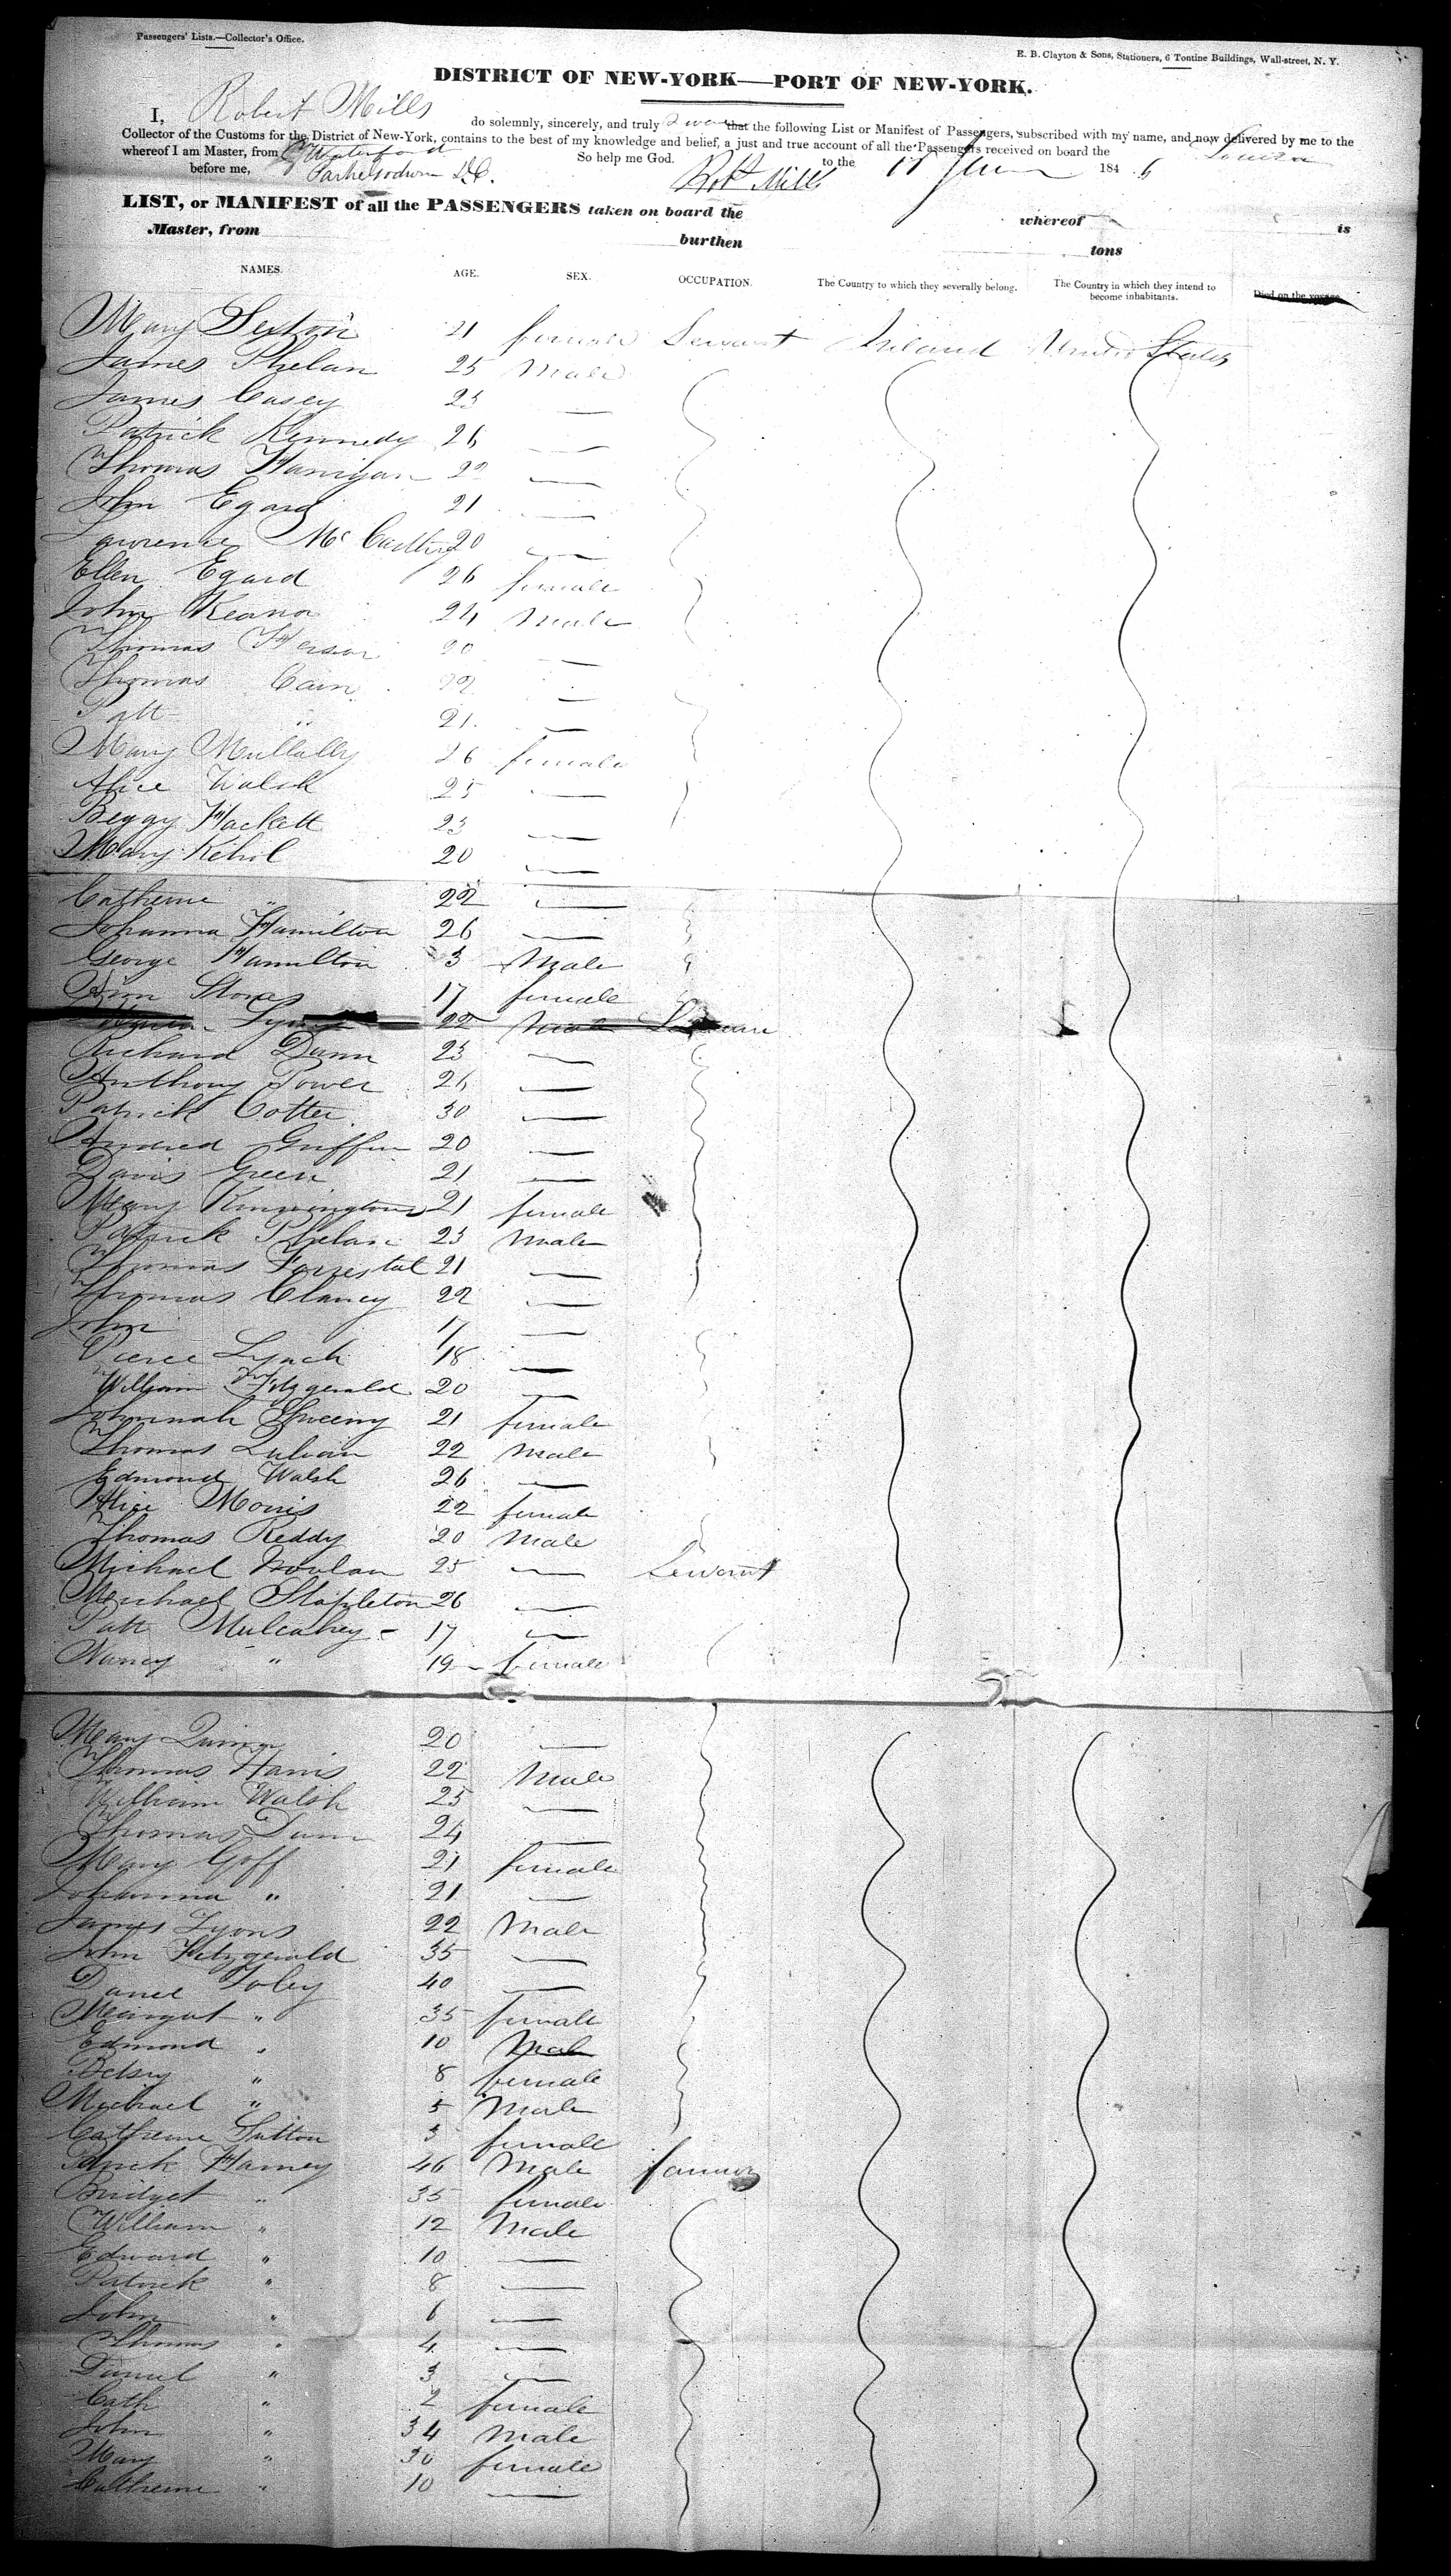 Passengers' Lists.—Collector's Office.
E. B. Clayton & Sons, Stationers, 6 Tontine Buildings, Wall-street, N. Y.
DISTRICT OF NEW-YORK—PORT OF NEW-YORK.
I, Robert Mills do solemnly, sincerely, and truly swear that the following List or Manifest of Passengers, subscribed with my name, and now delivered by me to the
Collector of the Customs for the District of New-York, contains to the best of my knowledge and belief, a just and true account of all the Passengers received on board the Louisa
whereof I am Master, from Waterford So help me God. to the 184 6
before me, D.C. Robt Mills
LIST, or MANIFEST of all the PASSENGERS taken on board the whereof is
Master, from burthen tons
NAMES. AGE. SEX. OCCUPATION. The Country to which they severally belong. The Country in which they intend to become inhabitants. Died on the voyage
Mary Sexton 21 female Servant Ireland United States
James Phelan 25 Male
James Casey 23 —
Patrick Kennedy 26 —
Thomas Hanigan 22 —
John Egard 21 —
Lawrence Mc 20 —
Ellen Egard 26 female
John Keana 24 Male
Thomas 20 —
Thomas Cain 22 —
Patt " 21 —
Mary Mullally 26 female
Alice Walsh 25 —
Peggy Hackett 23 —
Mary 20 —
Catherine " 22 —
Johanna Hamilton 26 —
George Hamilton 3 Male
Ann Stores 17 female
22 Male
Richard Dunn 23 —
Anthony Power 26 —
Patrick Cotter 30 —
Andred Griffin 20 —
Davis Green 21 —
Mary 21 female
Patrick Phelan 23 Male
Thomas Forrestal 21 —
Thomas Clancy 22 —
John 17 —
Pierce Lynch 18 —
William Fitzgerald 20 —
Johannah Sweeny 21 female
Thomas 22 Male
Edmond Walsh 26 —
Alice Morris 22 female
Thomas Reddy 20 Male
Michael Noulan 25 — Servant
Michael Stapleton 26 —
Patt Mulcahey 17 —
Nancy " 19 female
Mary Quinn 20 —
Thomas Harris 22 Male
William Walsh 25 —
Thomas Dunn 24 —
Mary Goff 21 female
Johanna " 21 —
James Lyons 22 Male
John Fitzgerald 35 —
Daniel Foley 40 —
Margret " 35 female
Edmond " 10 Male
Betsey " 8 female
Michael " 5 Male
Catherine Sutton 3 female
Patrick Harney 46 Male farmer
Bridget " 35 female
William " 12 Male
Edward " 10 —
Patrick " 8 —
John " 6 —
Thomas " 4 —
Daniel " 3 —
Cath " 2 female
John " 34 Male
Mary " 30 female
Catherine " 10 —